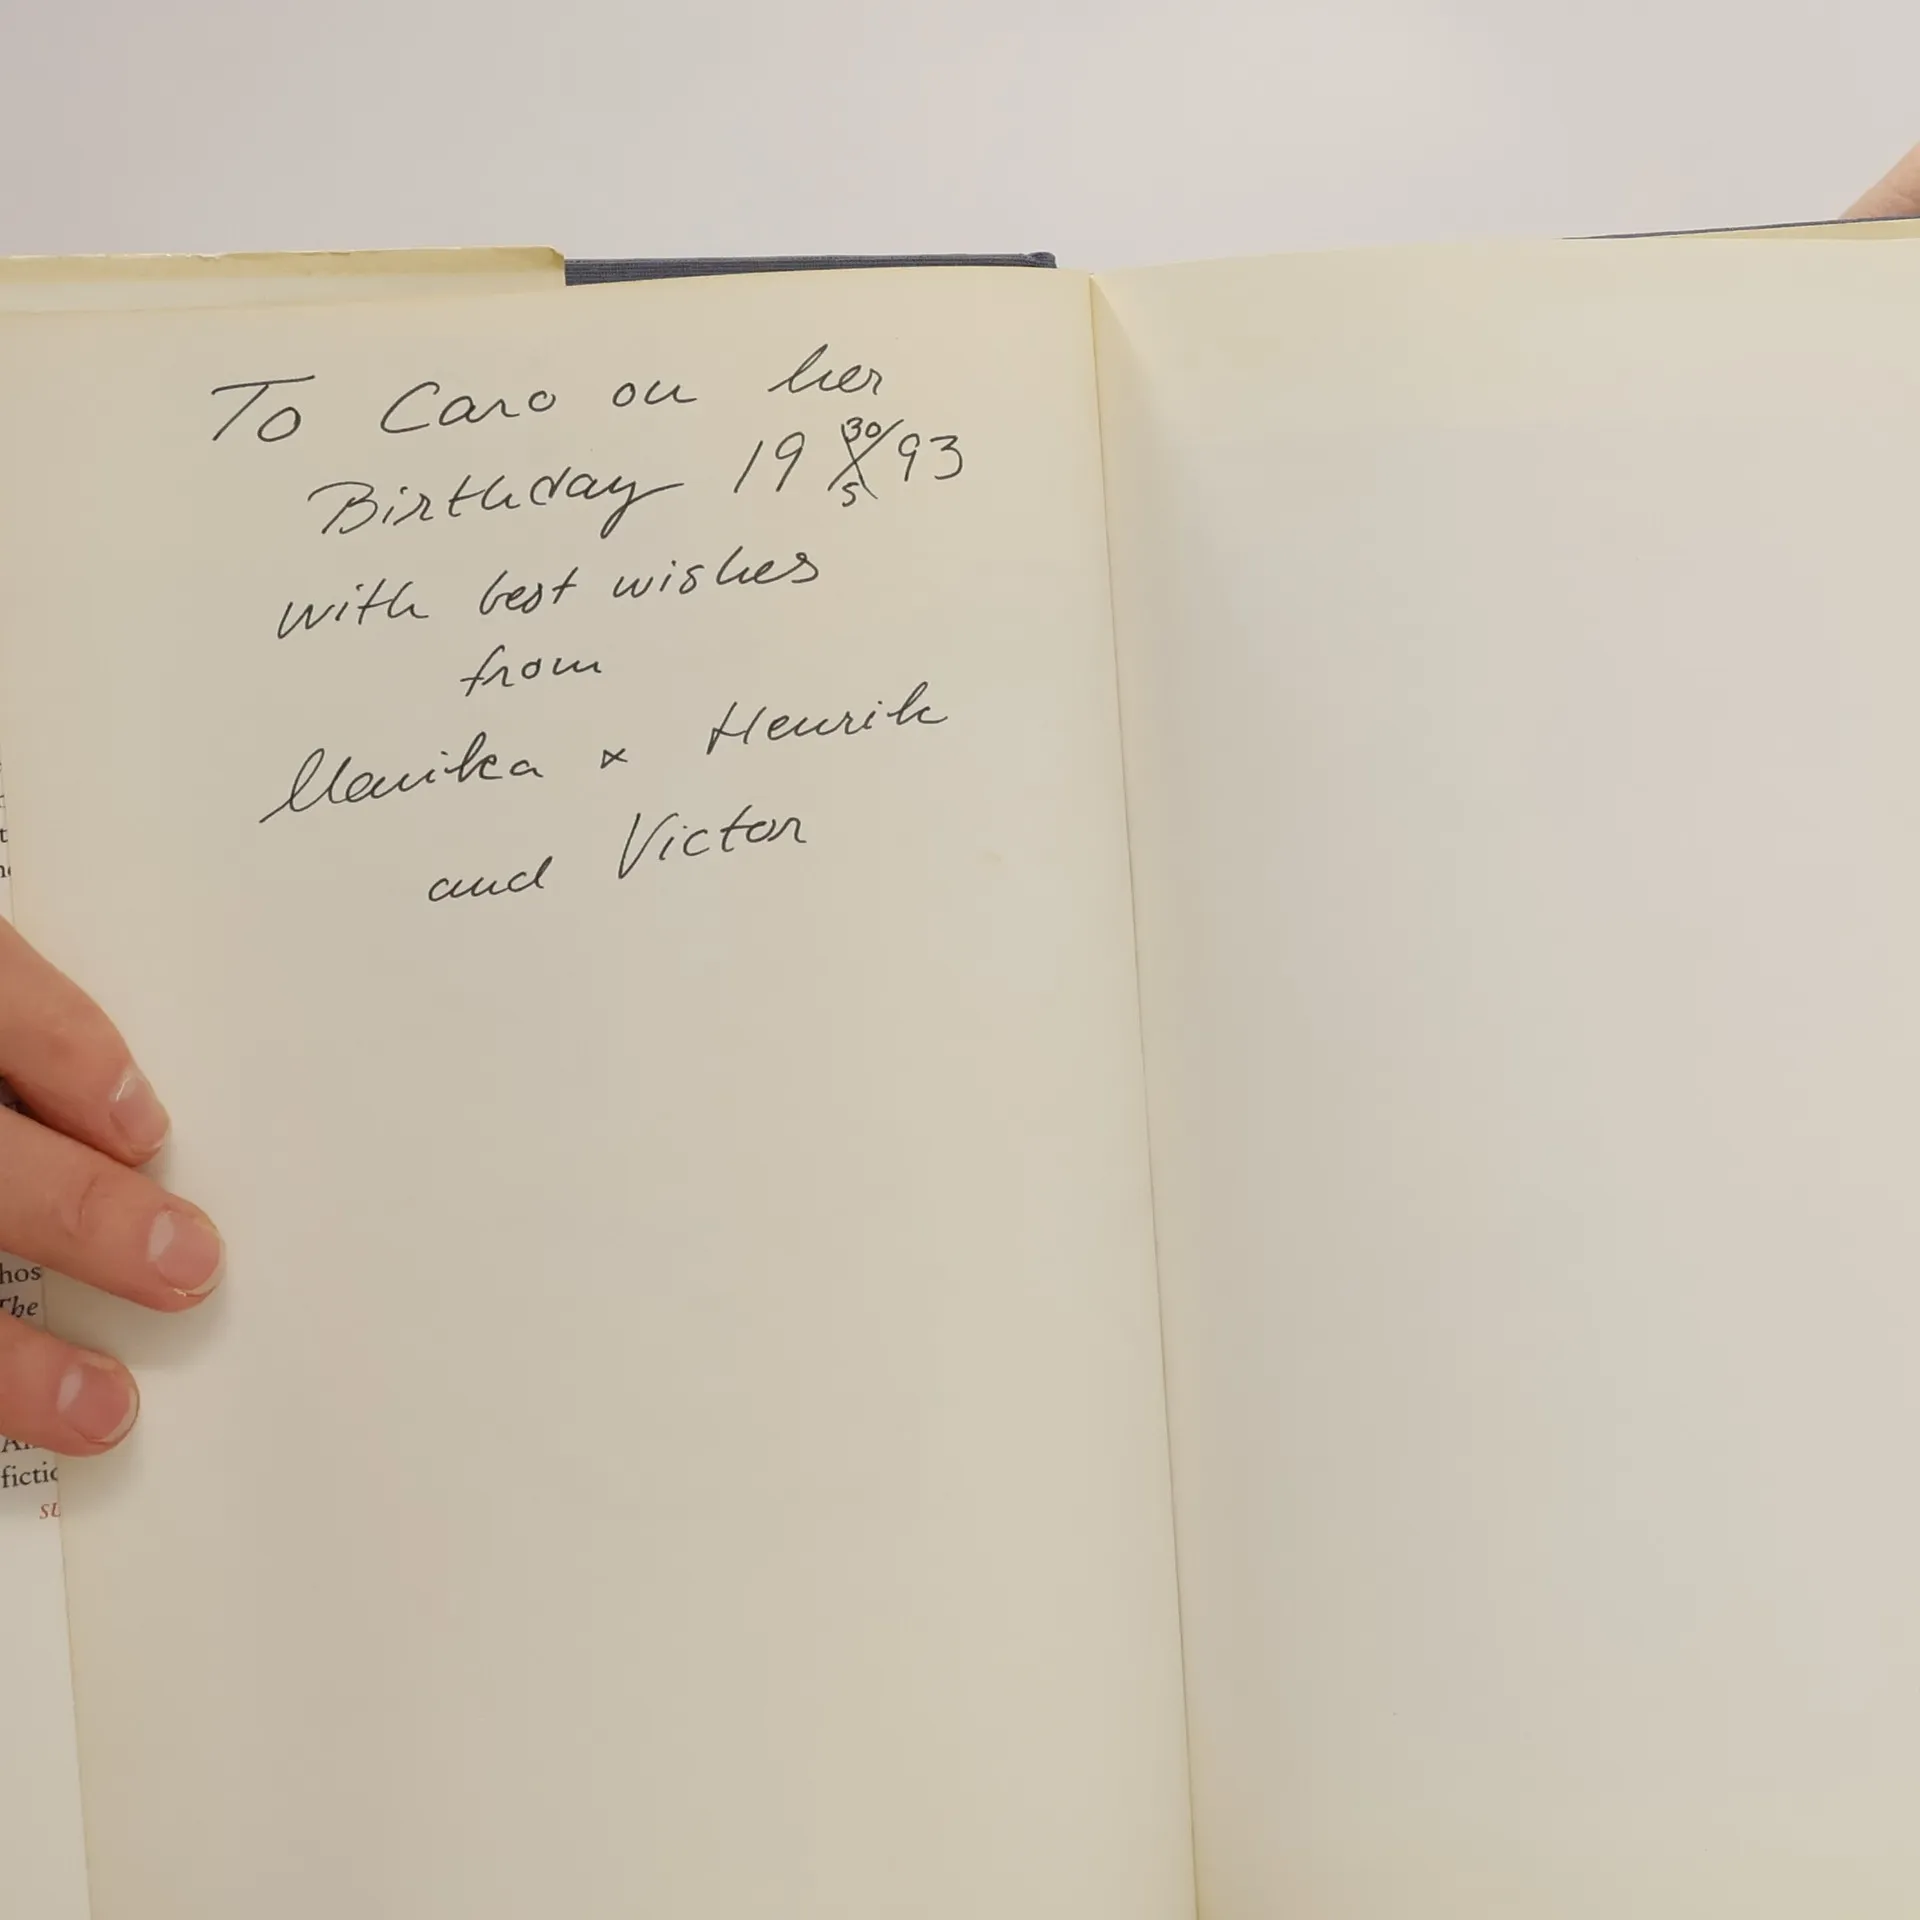 To Caro on her
Birthday 19 30/5 93
with best wishes
from
Monika & Henrik
and Victor
hos
The
fictio